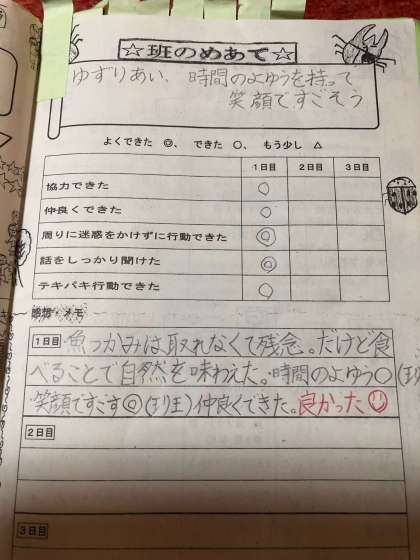 ☆班のめあて☆
ゆずりあい、時間のよゆうを持って
笑顔ですごそう
よくできた ◎、 できた ○、 もう少し △
1日目 2日目 3日目
協力できた ○
仲良くできた ○
周りに迷惑をかけずに行動できた ◎
話をしっかり聞けた ◎
テキパキ行動できた ○
感想・メモ
1日目 魚つかみは取れなくて残念。だけど食
べることで自然を味わえた。時間のよゆう○
笑顔ですごす◎ 仲良くできた。良かった
2日目
3日目